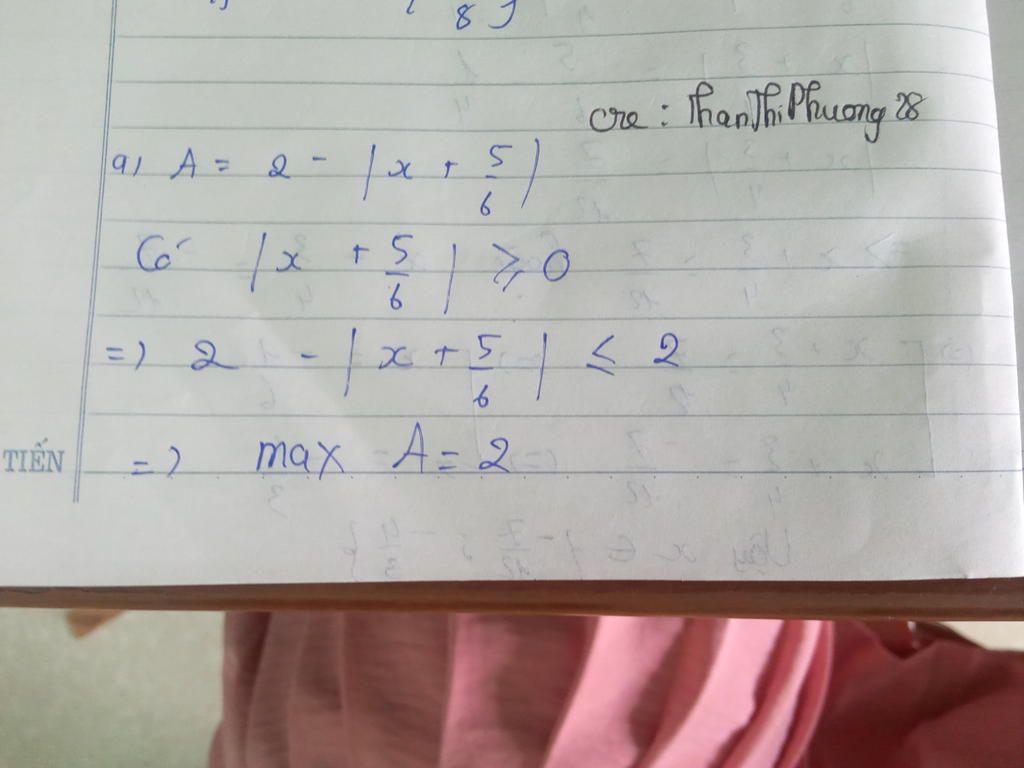 8 }
cre : ThanThiPhuong28
a) A = 2 - | x + 5/6 |
Có | x + 5/6 | ≥ 0
=) 2 - | x + 5/6 | ≤ 2
TIẾN
=) max A = 2